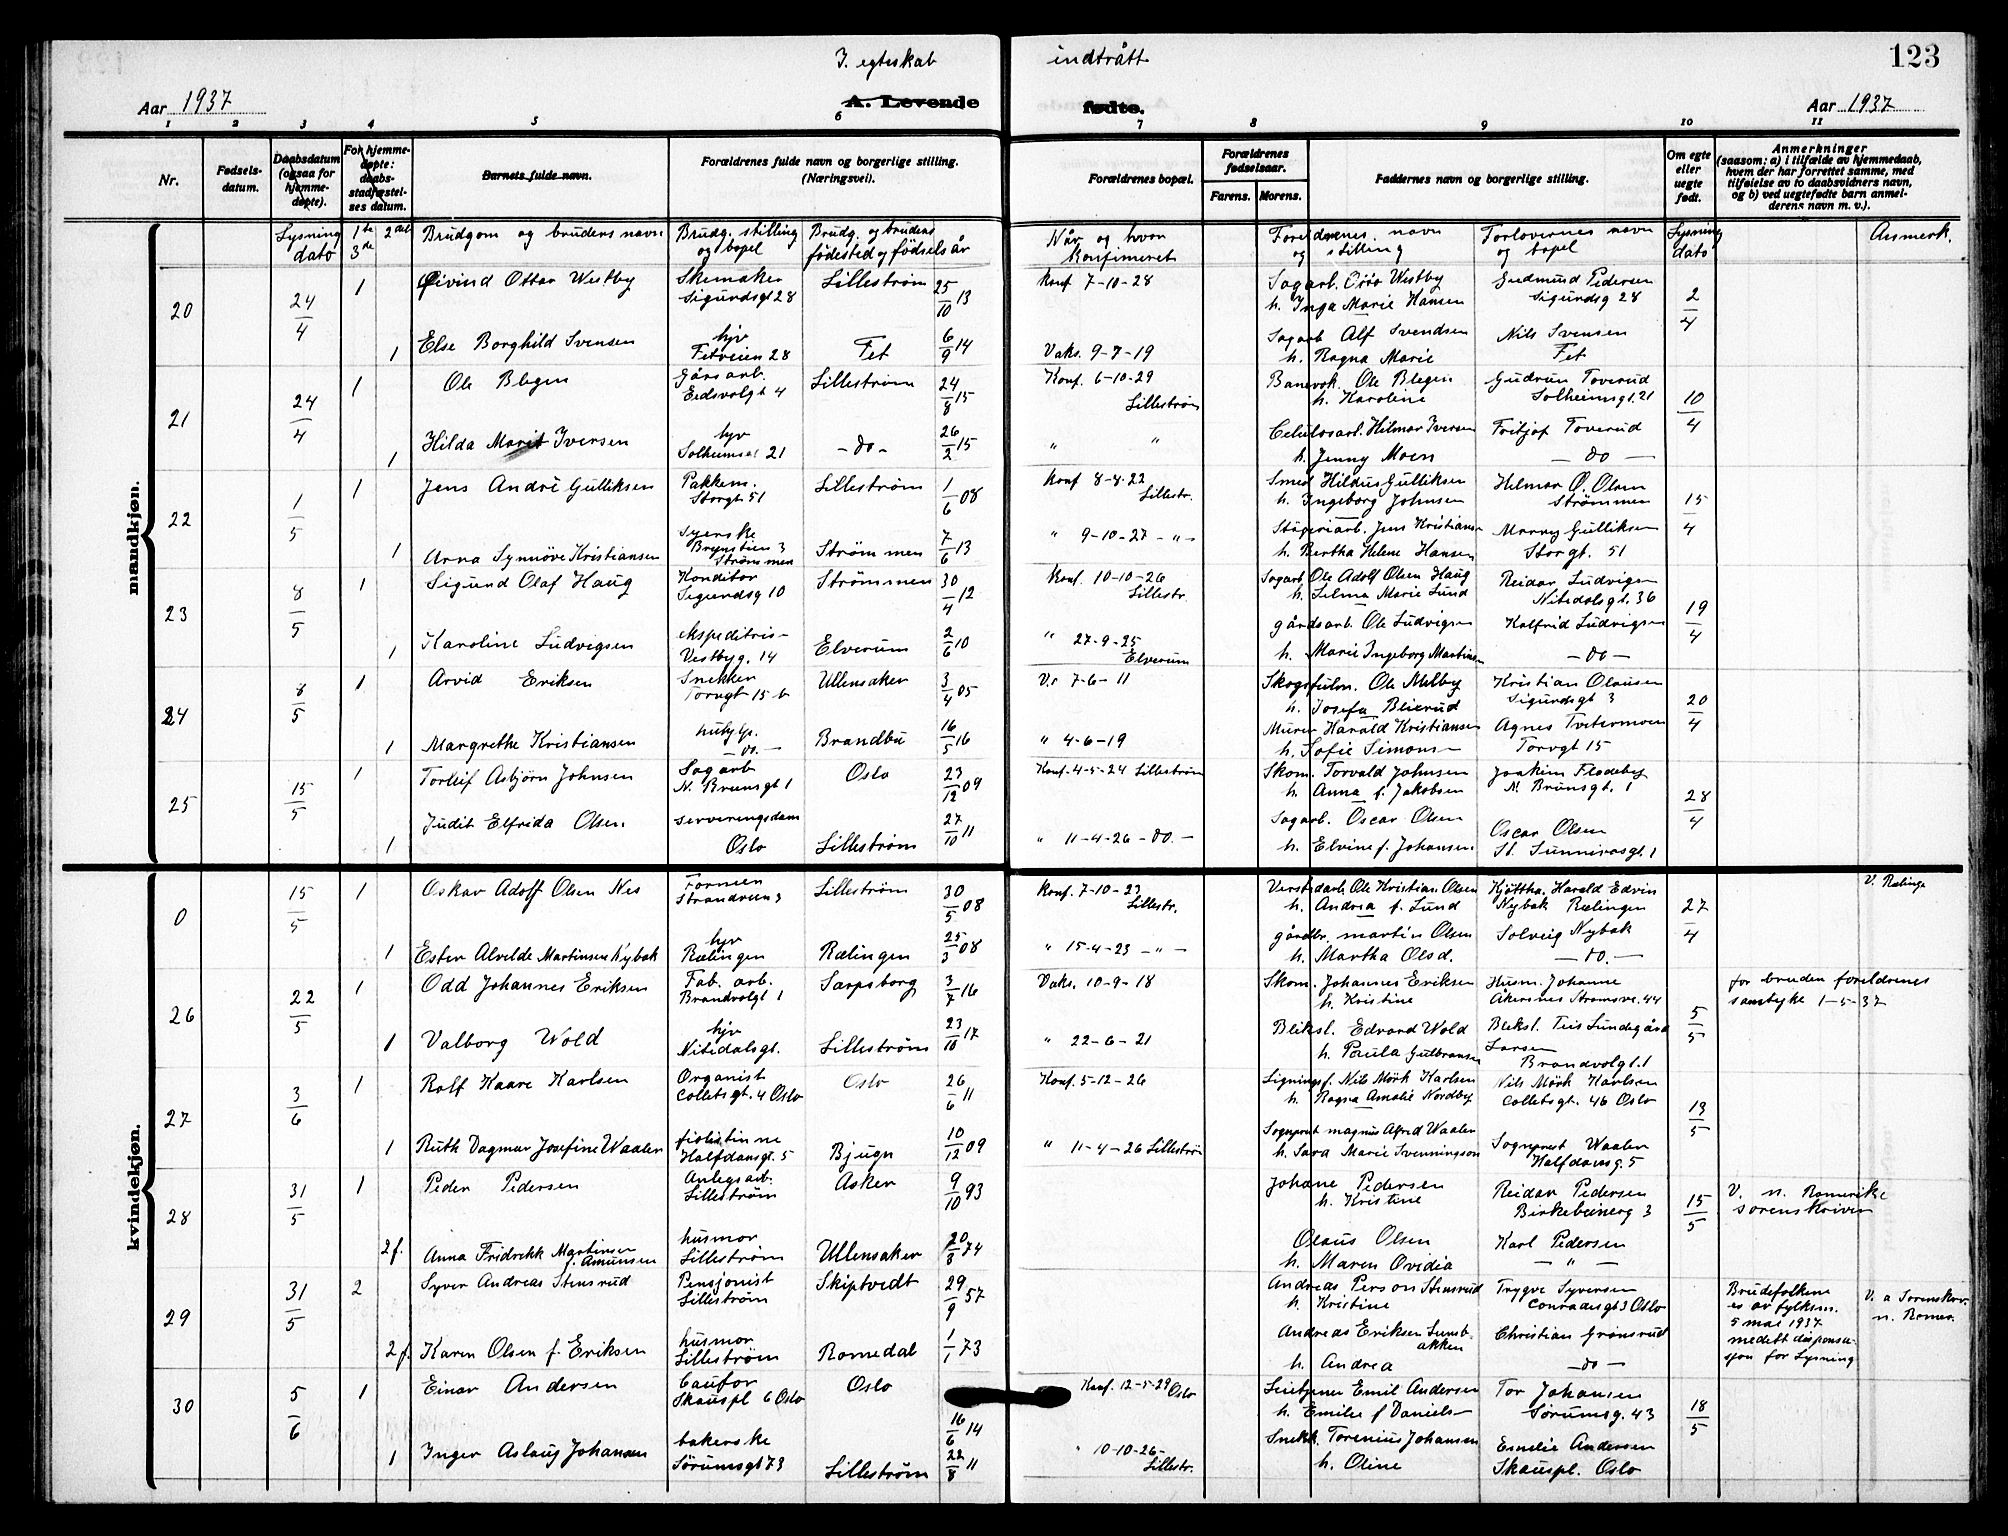 123
I. egteskab indtrått
Aar 1937 A. Levende fødte. Aar 1937
1 2 3 4 5 6 7 8 9 10 11
Nr. Fødsels-datum. Daabsdatum (ogsaa for hjemme-døpte). For hjemme-døpte: daabs-stadfæstel-ses datum. Barnets fulde navn. Forældrenes fulde navn og borgerlige stilling. (Næringsvei). Forældrenes bopæl. Forældrenes fødselsaar. Farens. Morens. Faddernes navn og borgerlige stilling. Om egte eller uegte født. Anmerkninger (saasom: a) i tilfælde av hjemmedaab, hvem der har forrettet samme, med tilføielse av to daabsvidners navn, og b) ved uegtefødte barn anmel-derens navn m. v.).
Lysning dato 1ste 2det 3de Brudgom og brudens navn Brudg. stilling og bopel Brudg. og brudens fødested og fødselsår Når og hvor Konfirmeret Foreldrenes navn og stilling Forlovernes navn og bopel Lysning dato Anmerk.
mandkjøn.
20 24/4 1 Øivind Ottar Westby Skomaker Sigurdsgt 28 Lillestrøm 25/10 13 Konf 7-10-28 Sagarb. Otto Westby h. Inga Marie Hansen Gudmund Pedersen Sigurdsg 28 2/4
1 Else Borghild Svensen hjv Fetveien 28 Fet 6/9 14 Vaks. 9-7-19 Sagarb Alf Svendsen h. Ragna Marie Nils Svensen Fet
21 24/4 1 Ole Blegen Gårdsarb. Eidsvolgt 4 Lillestrøm 24/8 15 Konf. 6-10-29 Lillestrøm Banevok. Ole Blegen h. Karoline Gudrun Toverud Solheimsgt. 21 10/4
1 Hilda Marie Iversen hjv Solheimsgt 21 -do- 26/2 15 " " Celulosarb. Hilmar Iversen h. Jenny Moen Fritjof Toverud -do-
22 1/5 1 Jens André Gulliksen Pakkem. Storgt 51 Lillestrøm 1/6 08 Konf 8-8-22 Lillestr. Smed Hildus Gulliksen h. Ingeborg Johnsen Helmar O. Olsen Strømmen 15/4
1 Arna Synnöve Kristiansen Syerske Brynstien 3 Strømmen Strømmen 7/6 13 " 9-10-27 - " - Støperiarb. Jens Kristiansen h. Bertha Helene Hansen Marry Gulliksen Storgt. 51
23 8/5 1 Sigurd Olaf Haug Konditor Sigurdsg 10 Strømmen 30/4 12 Konf. 10-10-26 Lillestr. Sagarb Ole Adolf Olsen Haug h. Selma Marie Lund Reidar Ludvigsen Nitedalsgt. 36 19/4
1 Karoline Ludvigsen ekspeditris- Vestbyg. 14 Elverum 2/6 10 " 27-9-25 Elverum gårdsarb. Ole Ludvigsen h. Marie Ingeborg Martinsen Kolfrid Ludvigsen -do-
24 8/5 1 Arvid Eriksen Snekker Torvgt 15 b Ullensaker 3/4 05 V.r 7-6-11 Skogsfulm. Ole Melby h. Josefa Blierud Kristian Olausen Sigurdsgt 3 20/4
1 Margrethe Kristiansen hushjp. -do.- Brandbu 16/5 16 " 4-6-19 Murer Harald Kristiansen h. Sofie Simons- Agnes Tvetermoen Torvgt 15
25 15/5 1 Torleif Asbjørn Johnsen Sagarb N. Brunsgt 1 Oslo 23/12 09 Konf. 4-5-24 Lillestrøm Skom. Torvald Johnsen h. Anna f. Jakobsen Joakim Flodeby N. Brunsgt. 1 28/4
1 Judit Elfrida Olsen. serveringsdam Oslo Lillestrøm 27/10 11 " 11-4-26 -do.- Sagarb. Oscar Olsen h. Elvine f. Johansen Oscar Olsen St. Sunnivasgt. 1
kvindekjøn.
0 15/5 1 Oskar Adolf Olsen Nes Formen Strandveien 3 Lillestrøm 30/5 08 Konf. 7-10-23 Lillestr. Verstedarb Ole Kristian Olsen h. Andrea f. Lund Kjøttha. Harald Edvin Nybak Rælingen 27/4 V. Rælinge
1 Ester Alvilde Martinsen Nybak hjv Rælingen Rælingen 25/3 08 " 15-4-23 - " - gårdbr. martin Olsen h. Martha Olsd. Solveig Nybak -do.-
26 22/5 1 Odd Johannes Eriksen Fab. arb. Brandvolgt 1 Sarpsborg 3/7 16 Vaks. 10-9-18 Skom. Johannes Eriksen h. Kristine Husm. Johanne Åkersnes Strømsve. 44 5/5 for bruden foreldrenes samtyke 1-5-37
1 Valborg Wold hjv Nitedalsgt. Lillestrøm 23/10 17 " 22-6-21 Bliksl. Edvard Wold h. Paula Gulbransen Bleksl. Teis Lundegård Larsen Brandvolgt. 1
27 3/6 1 Rolf Kaare Karlsen Organist Colletsgt. 4 Oslo Oslo 26/6 11 Konf. 5-12-26 Ligningsf. Nils Mörk Karlsen h. Ragna Amalie Nordby Nils Mörk Karlsen Colletsgt. 46 Oslo 13/5
1 Ruth Dagmar Josefine Waaler fiolistinne Halfdansgt. 5 Bjugn 10/12 09 " 11-4-26 Lillestrøm Sogneprest magnus Alfred Waaler h. Sara Marie Svenningson Sogneprest Waaler Halfdansg. 5
28 31/5 1 Peder Pedersen Anlegsarb. Lillestrøm Asker 9/10 93 Johane Pedersen h. Kristine Reidar Pedersen Birkebeinerg 3 15/5 V. n. Romerike sorenskriver
2 f. Anna Fridrikk Martinsen f. Amunsen husmor Lillestrøm Ullensaker 20/3 74 Olaus Olsen h. Maren Ovidia Karl Pedersen - " -
29 31/5 2 Syver Andreas Stensrud Pensjonist Lillestrøm Skiptvedt 29/9 57 Andreas Person Stensrud h. Kristine Trygve Syversen Conradisgt 3 Oslo Brudefolkene es av fylkesm. 5 mai 1937 medelt dispensa-sjon for Lysning V. a Sorenskr. n. Romer.
2 f. Karen Olsen f. Eriksen husmor Lillestrøm Romedal 1/1 73 Andreas Eriksen h. Andrea Christian Grønsrud -do-
30 5/6 1 Einar Andersen Skauspl 6 Oslo Oslo 16/6 14 Konf. 12-5-29 Oslo Emil Andersen h. Emilie f Daniels- Tor Johansen Sørumsg. 43 18/5
1 Inger Aslaug Johansen bakerske Sørumsgt 73 Lillestrøm 22/8 11 " 10-10-26- Lillestr. Snekk. Torenius Johansen h. Oline Emelie Andersen Skauspl. Oslo